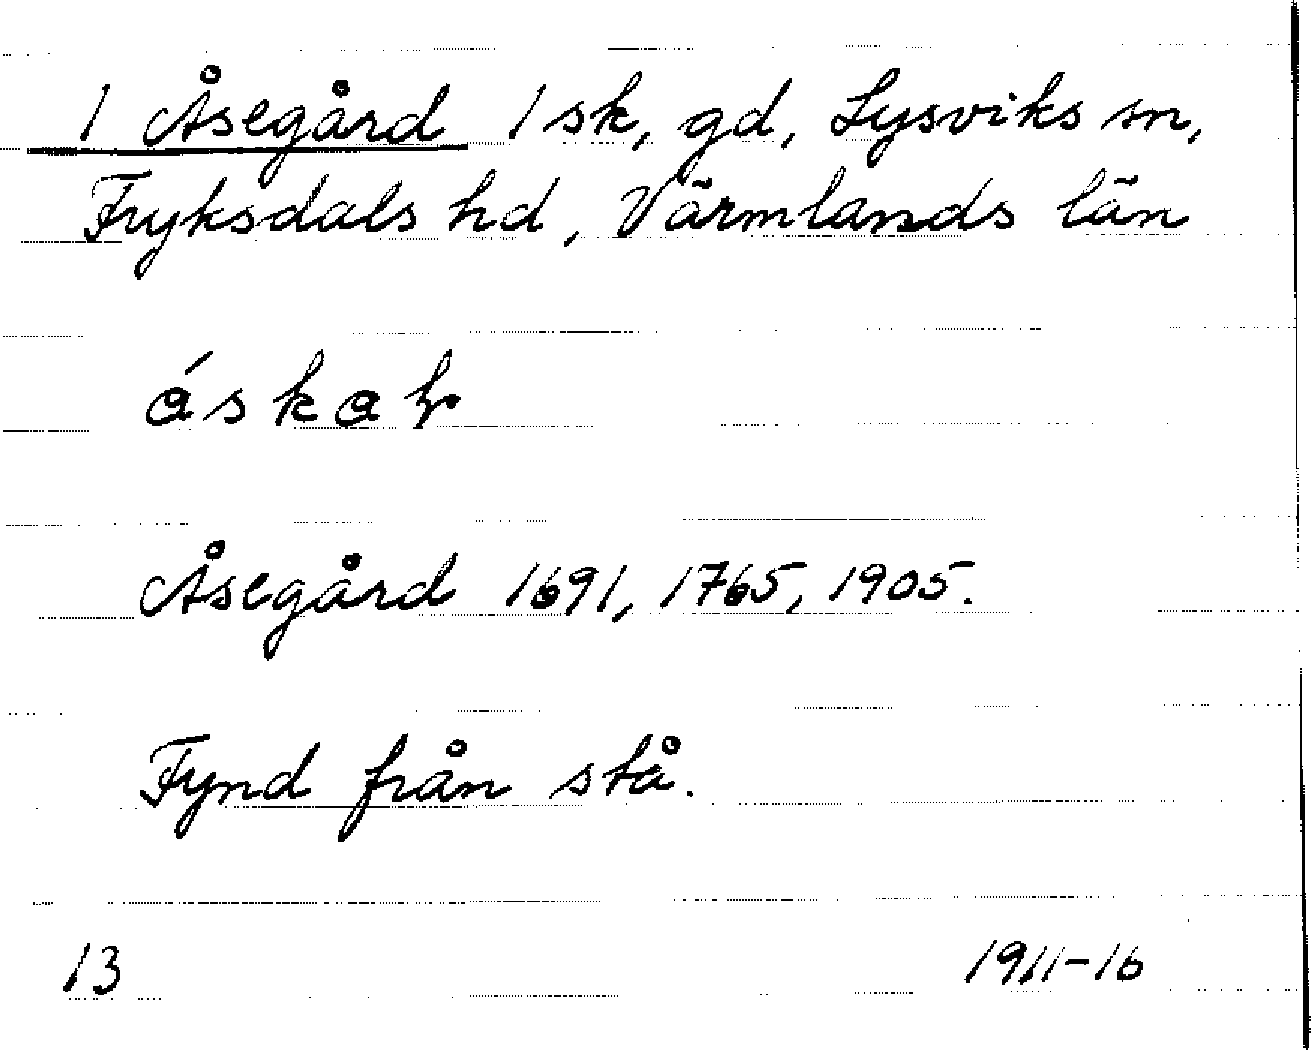 1 Åsegård 1 sk, gd, Lysviks sn,
Fryksdals hd, Värmlands län
Åsegård 1691, 1765, 1905.
Fynd från stå.
13
1911-16